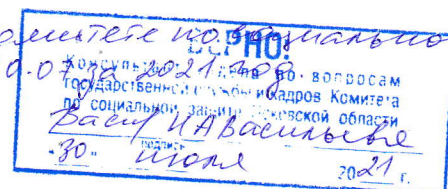 омитете по социально
0.07 за 2021 год
ВЕРНО!
Консультант отдела по вопросам
государственной службы и кадров Комитета
по социальной защите Псковской области
Васил И А Васильева
подпись
"30" июля 2021 г.